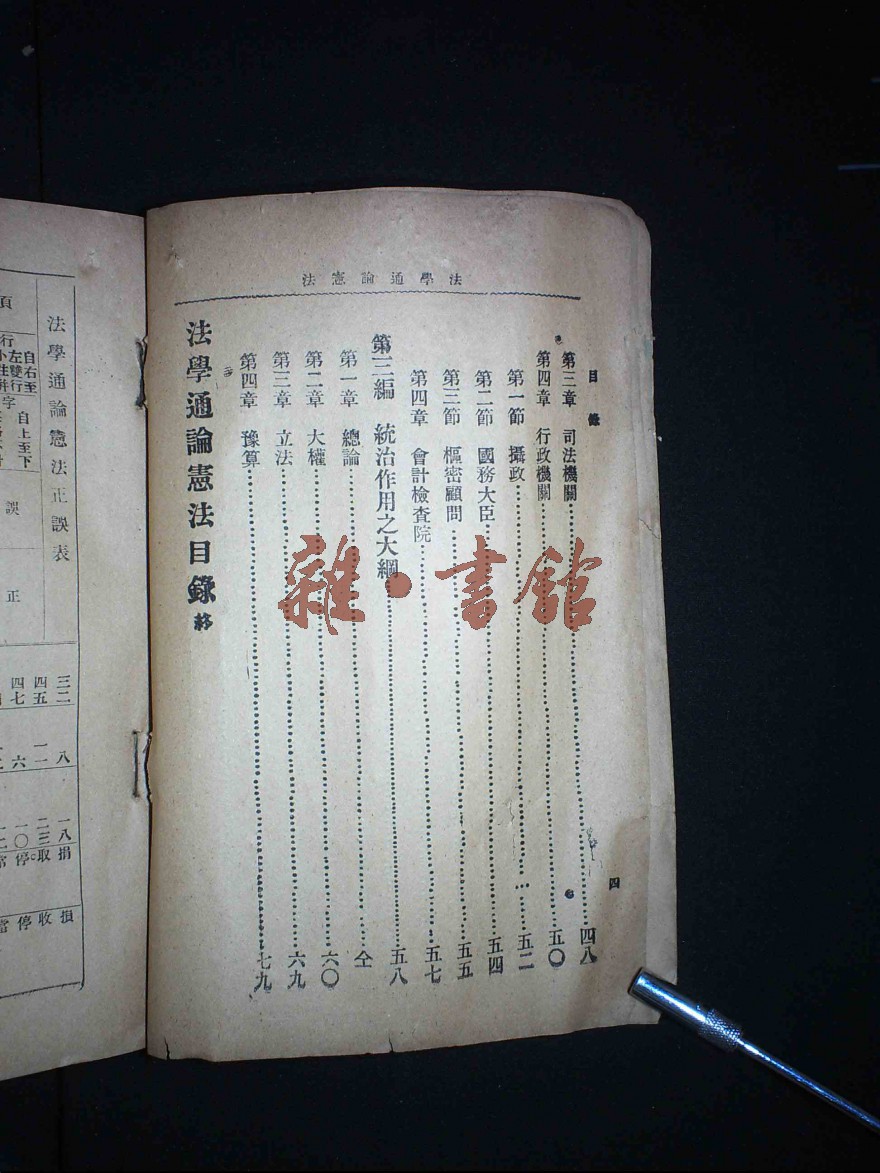 法學通論憲法
目錄
四
第三章 司法機關 四八
第四章 行政機關 五〇
第一節 攝政 五二
第二節 國務大臣 五四
第三節 樞密顧問 五五
第四章 會計檢查院 五七
第三編 統治作用之大綱 五八
第一章 總論 仝
第二章 大權 六〇
第三章 立法 六九
第四章 豫算 七九
法學通論憲法目錄終
雜·書館
法學通論憲法正誤表
頁
自右至
左雙行
自上至下
誤
正
三二 八 一八 捐 損
四五 一二 二三 取 收
四七 六 一〇 停 停